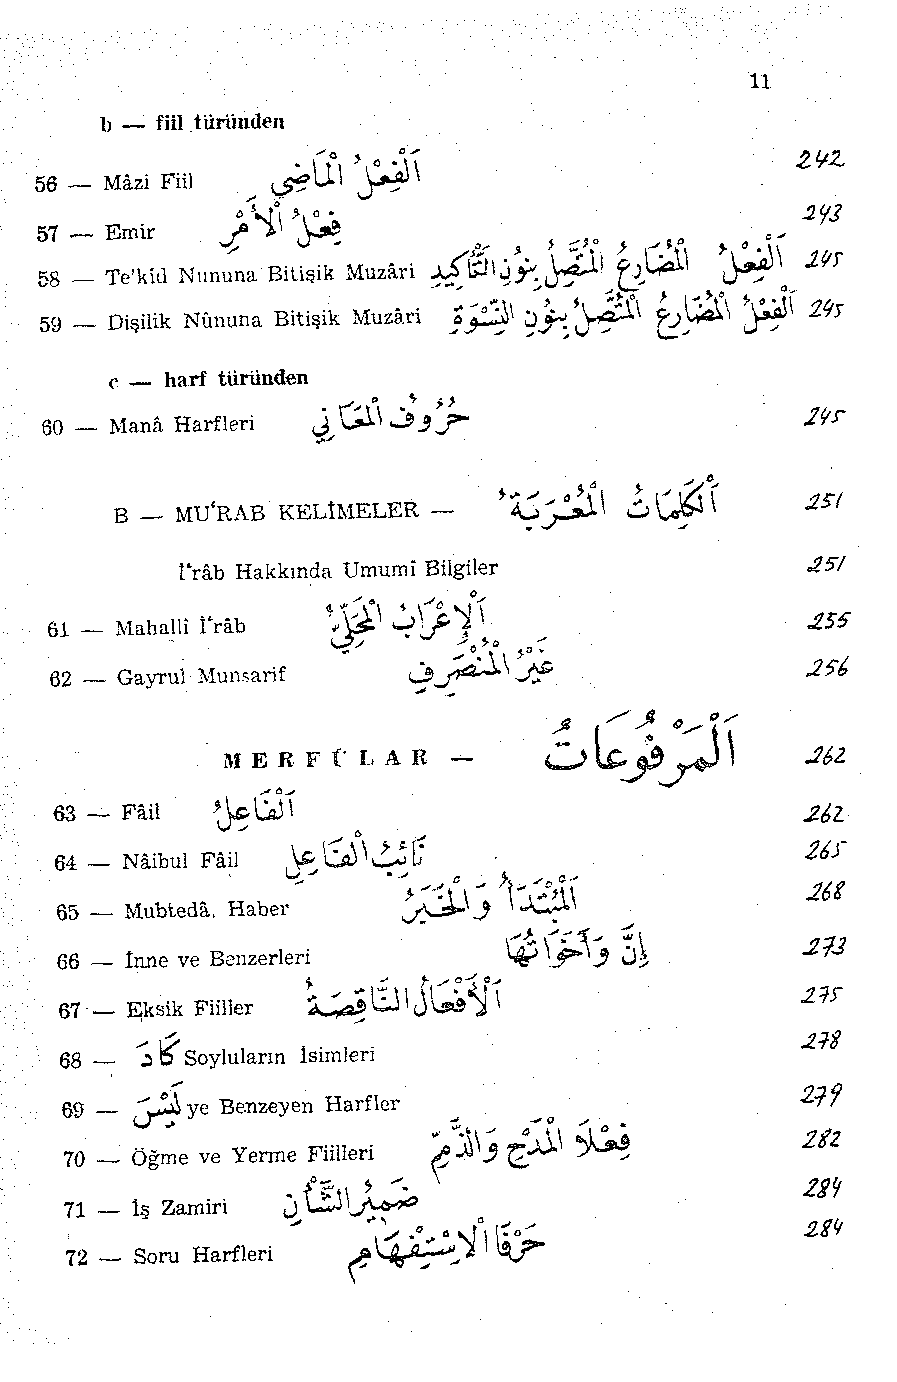 11
b — fiil türünden
56 — Mâzi Fiil اَلْفِعْلُ الْمَاضِى 242
57 — Emir فِعْلُ الْأَمْرِ 243
58 — Te'kîd Nununa Bitişik Muzâri اَلْفِعْلُ الْمُضَارِعُ الْمُتَّصِلُ بِنُونِ التَّأْكِيدِ 245
59 — Dişilik Nûnuna Bitişik Muzâri اَلْفِعْلُ الْمُضَارِعُ الْمُتَّصِلُ بِنُونِ النِّسْوَةِ 245
c — harf türünden
60 — Manâ Harfleri حُرُوفُ الْمَعَانِي 245
B — MU'RAB KELİMELER — اَلْكَلِمَاتُ الْمُعْرَبَةُ 251
İ'râb Hakkında Umumî Bilgiler 251
61 — Mahallî İ'râb اَلْإِعْرَابُ الْمَحَلِّيُّ 255
62 — Gayrul Munsarif غَيْرُ الْمُنْصَرِفِ 256
MERFÛLAR — اَلْمَرْفُوعَاتُ 262
63 — Fâil اَلْفَاعِلُ 262
64 — Nâibul Fâil نَائِبُ الْفَاعِلِ 265
65 — Mubtedâ, Haber اَلْمُبْتَدَأُ وَ الْخَبَرُ 268
66 — İnne ve Benzerleri إِنَّ وَ أَخَوَاتُهَا 273
67 — Eksik Fiiller اَلْأَفْعَالُ النَّاقِصَةُ 275
68 — كَادَ Soyluların İsimleri 278
69 — لَيْسَ ye Benzeyen Harfler 279
70 — Öğme ve Yerme Fiilleri فِعْلَا الْمَدْحِ وَ الذَّمِّ 282
71 — İş Zamiri ضَمِيرُ الشَّأْنِ 284
72 — Soru Harfleri حَرْفَا الْاِسْتِفْهَامِ 284